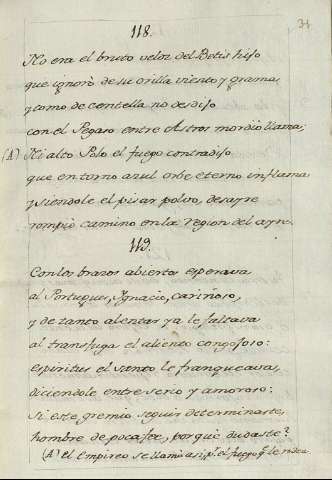 34
118.
No era el bruto veloz del Betis hijo
que ignorò de su orilla viento y grama,
y como de centella no desdijo
con el Pegaso entre Astros mordio llama;
(A) Ni alto Polo el fuego contradijo
que en torno azul orbe eterno inflama
y siendole el pisar polvo, desayre
rompiò camino en la region del ayre.
119.
Con los brazos abiertos esperava
al Portugues, Ignacio, cariñoso,
y de tanto alentar ya le faltava
al transfuga el aliento congojoso:
espiritus el santo le franqueava,
diciendole entre serio y amoroso:
Si este gremio seguir determinaste,
hombre de poca fee, por què dudaste?
(A) el Empireo se llamò asi pr. el fuego q. le rodea